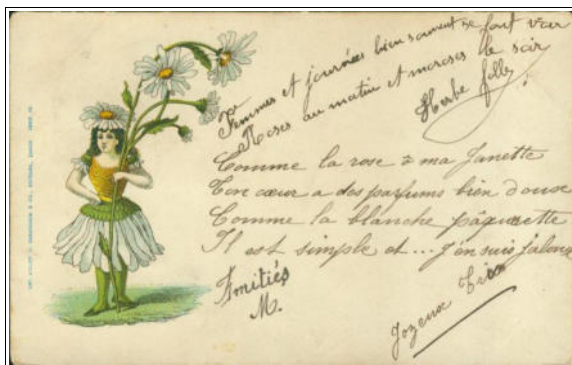 Femmes et journées bien souvent se font voir
Roses au matin et moroses le soir
Herbe folle
Comme la rose ô ma Janette
Ton cœur a des parfums bien doux
Comme la blanche pâquerette
Il est simple et ... j'en suis jaloux
Amitiés
M.
Joyeux